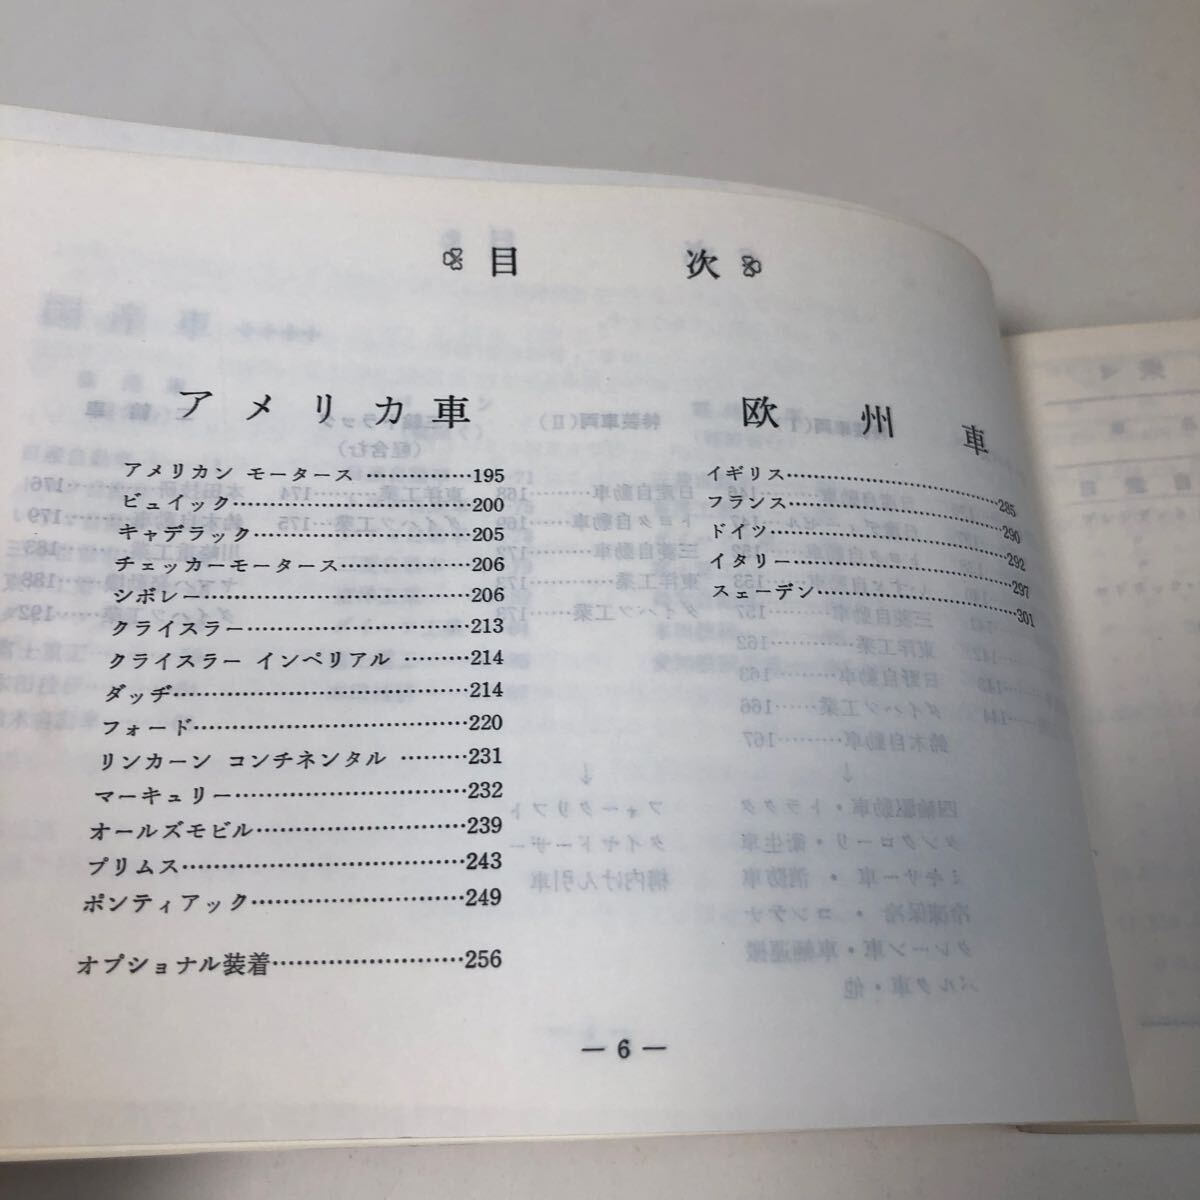 目 次
アメリカ車
アメリカン モータース ……………195
ビュイック……………………………200
キャデラック…………………………205
チェッカーモータース………………206
シボレー………………………………206
クライスラー…………………………213
クライスラー インペリアル ………214
ダッヂ…………………………………214
フォード………………………………220
リンカーン コンチネンタル ………231
マーキュリー…………………………232
オールズモビル………………………239
プリムス………………………………243
ポンティアック………………………249
オプショナル装着……………………256
欧州車
イギリス…………………………285
フランス…………………………290
ドイツ……………………………292
イタリー…………………………297
スェーデン………………………301
— 6 —